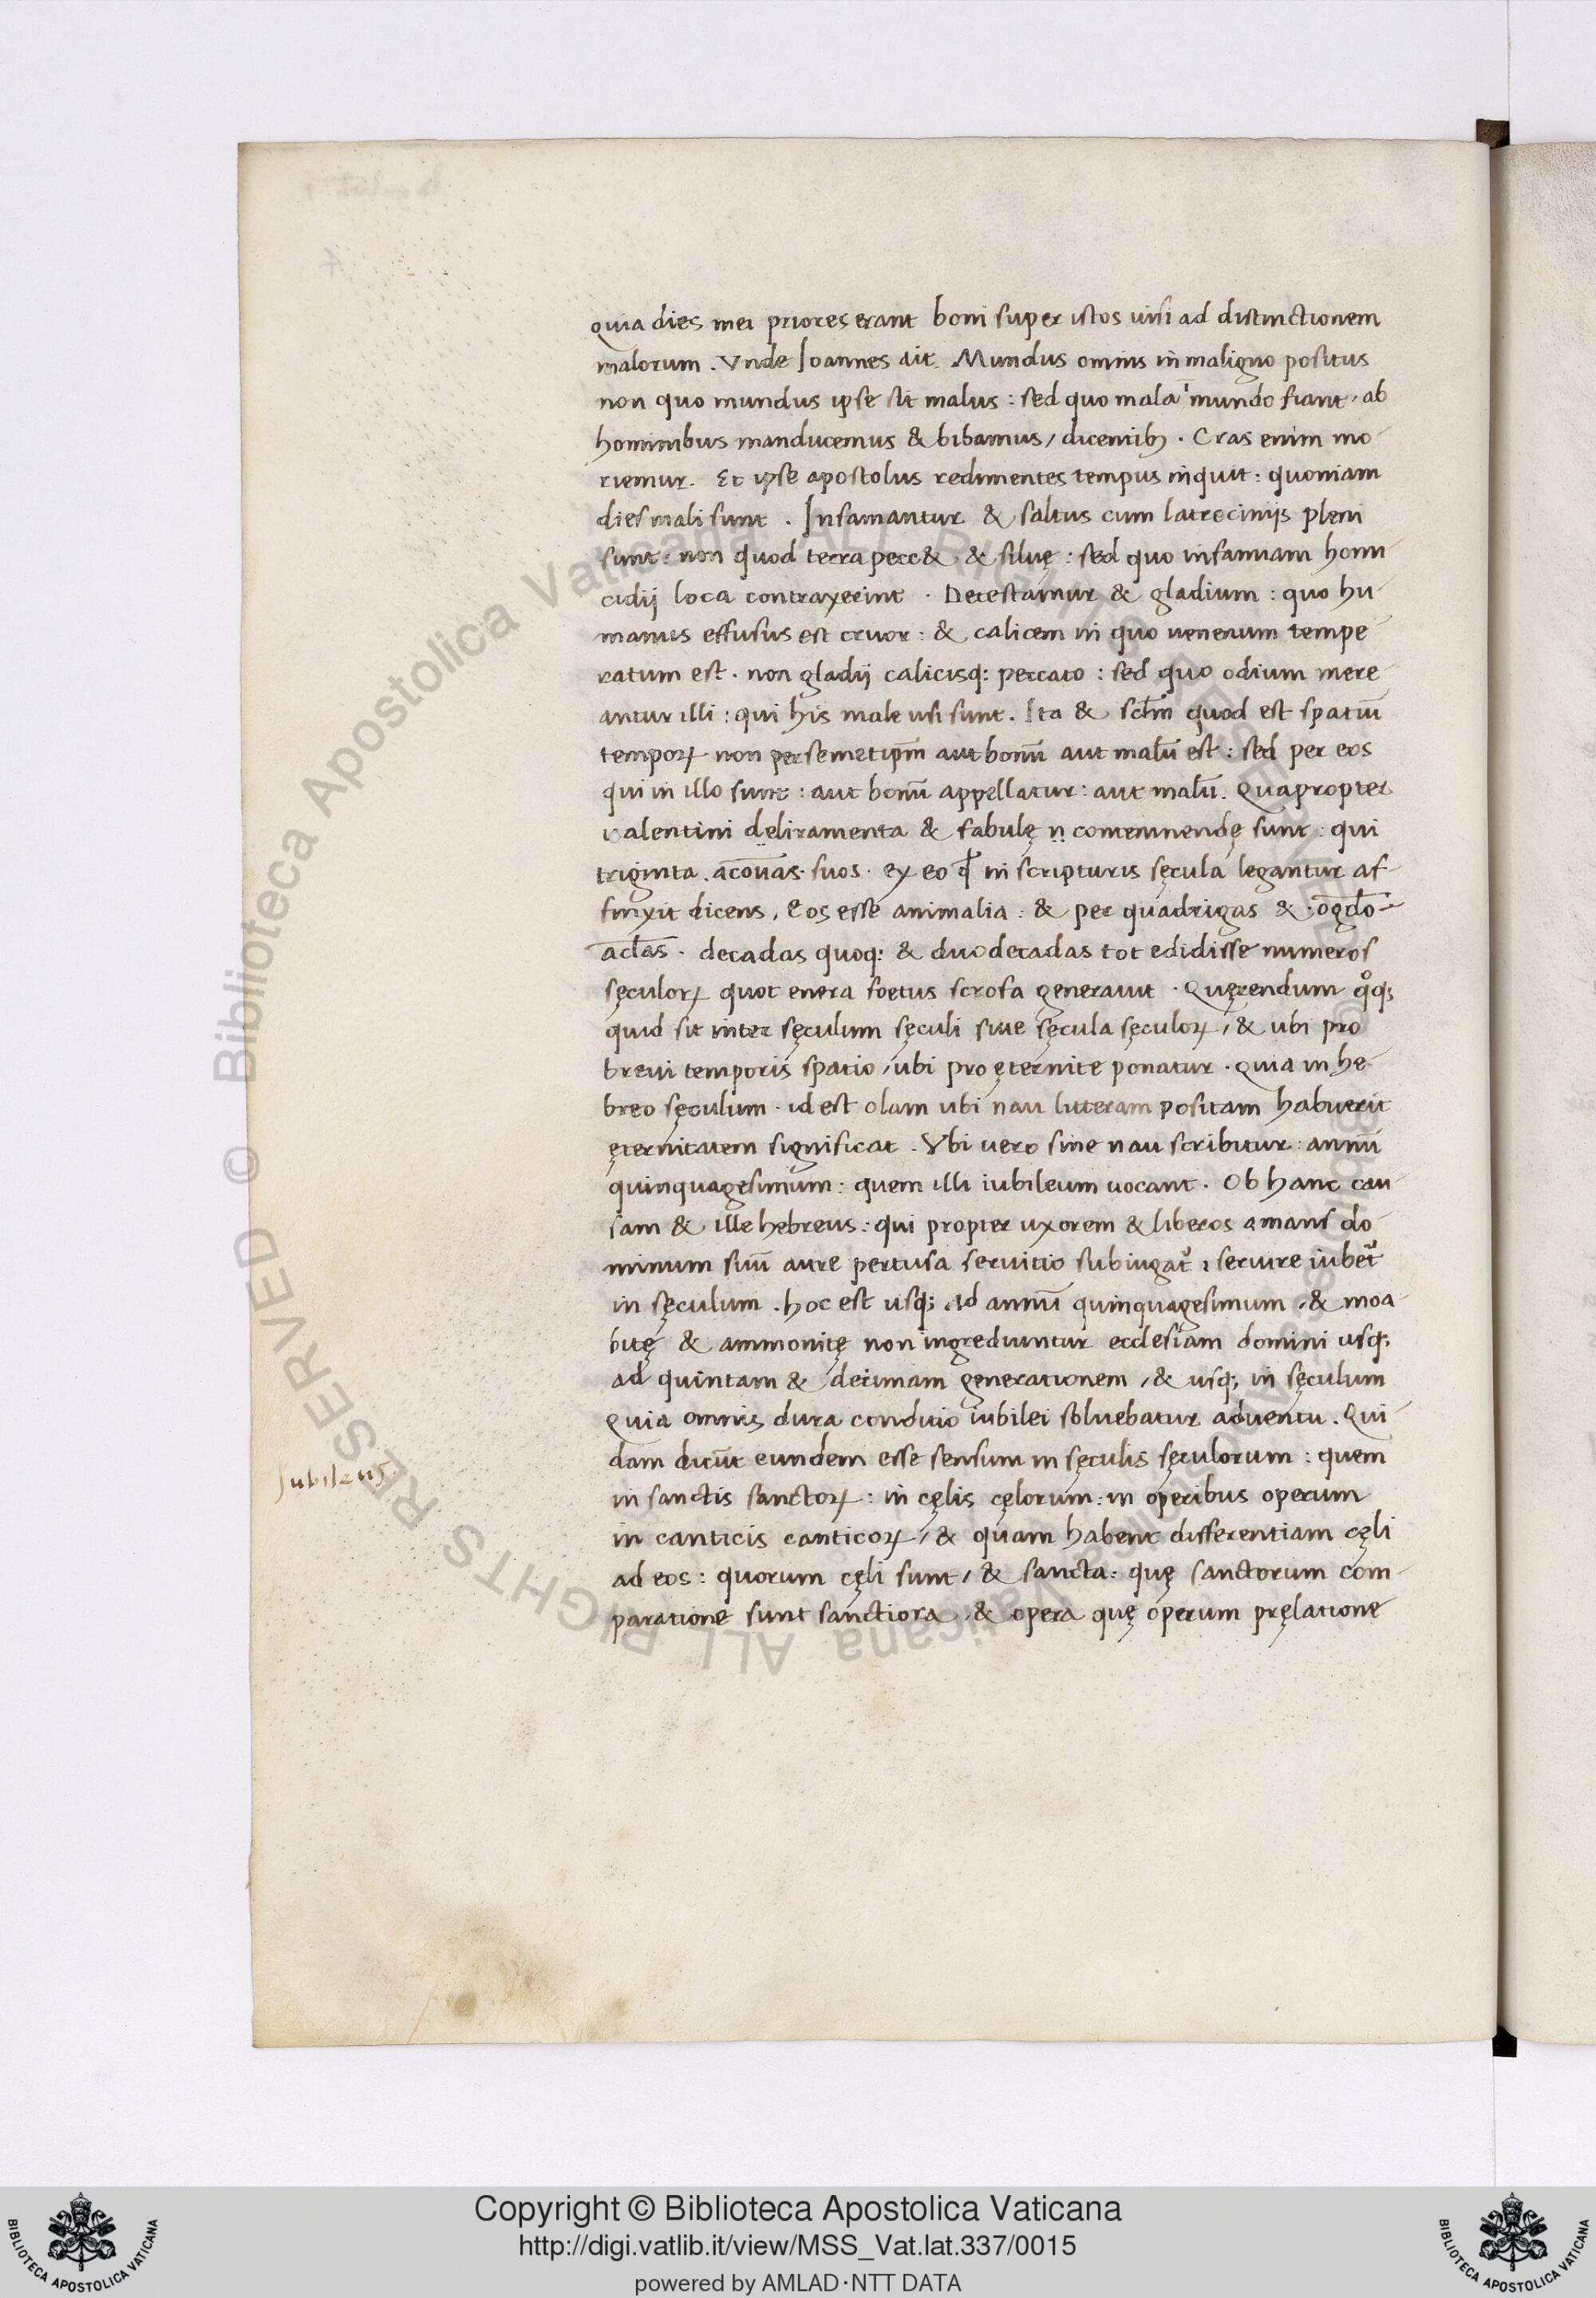 quia dies mei priores erant boni super istos nisi ad distinctionem
malorum . Vnde Joannes ait . Mundus omnis in maligno positus
non quo mundus ipse sit malus : sed quo mala ī mundo fiant , ab
hominibus manducemus & bibamus , dicentibꝫ . Cras enim mo-
riemur . Et ipse apostolus redimentes tempus inquit : quoniam
dies mali sunt . Infamantur & saltus cum latrociniis pleni
sunt : non quod terra pecc& & siluę : sed quo infamiam homi-
cidij loca contraxerint . Detestamur & gladium : quo hu-
manus effusus est cruor : & calicem in quo uenenum tempe-
ratum est . non gladij calicisq; peccato : sed quo odium mere-
antur illi : qui his male usi sunt . Ita & sc̄lm quod est spatiū
temporꝝ non per semetip̄m aut bonū aut malū est : sed per eos
qui in illo sunt : aut bonū appellatur : aut malū . Quapropter
ualentini deliramenta & fabulę ṇ contemnendę sunt : qui
triginta . aeonas . suos . ex eo qd̄ in scripturis sęcula legantur af-
finxit dicens , Eos esse animalia : & per quadrigas & . ogdo-
adas . decadas quoq; & duodecadas tot edidisse numeros
sęculorꝝ quot enera foetus scrofa generauit . Quęrendum qͦq;
quid sit inter sęculum sęculi siue sęcula sęculorꝝ , & ubi pro
breui temporis spatio , ubi pro ęternite ponatur . quia in he-
breo sęculum . id est olam ubi uau litteram positam habuerit
ęternitatem significat . Vbi uero sine uau scribitur : annū
quinquagesimum : quem illi iubileum uocant . Ob hanc cau-
sam & ille hebreus : qui propter uxorem & liberos amans do-
minum suū aure pertusa seruitio subiugat᷑ , seruire iubet᷑
in sęculum . hoc est usq; ad annū quinquagesimum , & moa-
bitę & ammonitę non ingrediuntur ecclesiam domini usq;
ad quintam & decimam generationem , & usq; in sęculum
Quia omnis dura conditio iubilei soluebatur aduentu . Qui-
dam dicūt eundem esse sensum in sęculis sęculorum : quem
in sanctis sanctorꝝ : in cęlis cęlorum : in operibus operum
in canticis canticorꝝ , & quam habent differentiam cęli
ad eos : quorum cęli sunt , & sancta : quę sanctorum com-
paratione sunt sanctiora , & opera quę operum pręlatione
Jubileus
© Biblioteca Apostolica Vaticana ALL RIGHTS RESERVED
Copyright © Biblioteca Apostolica Vaticana
http://digi.vatlib.it/view/MSS_Vat.lat.337/0015
powered by AMLAD·NTT DATA
BIBLIOTECA APOSTOLICA VATICANA
BIBLIOTECA APOSTOLICA VATICANA